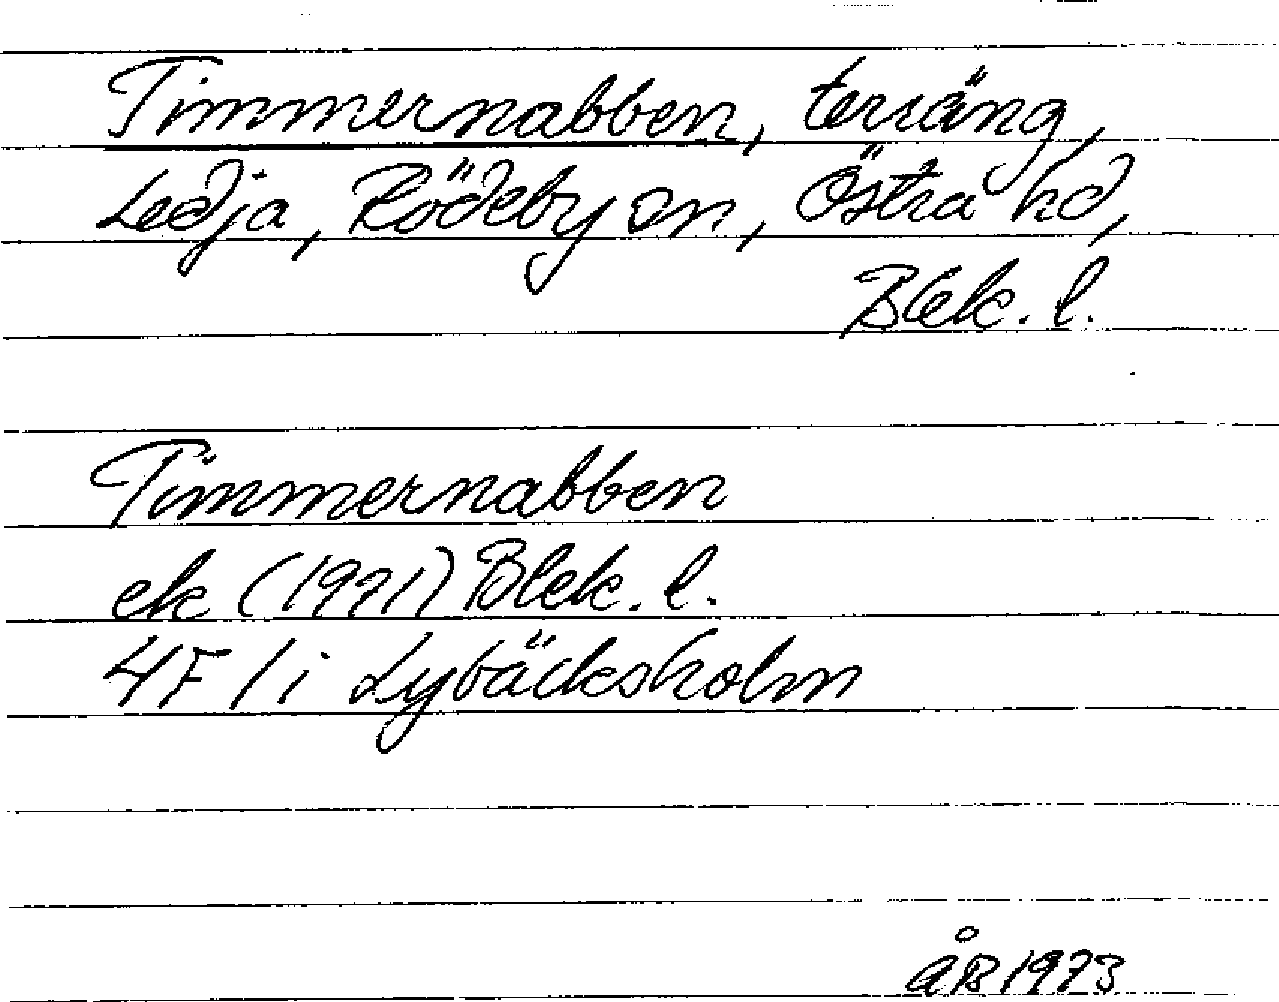 Timmernabben, terräng,
Ledja, Rödeby sn, Östra hd,
Blek. l.
Timmernabben
ek (1971) Blek. l.
4F 1i Lybäcksholm
ÅB 1973